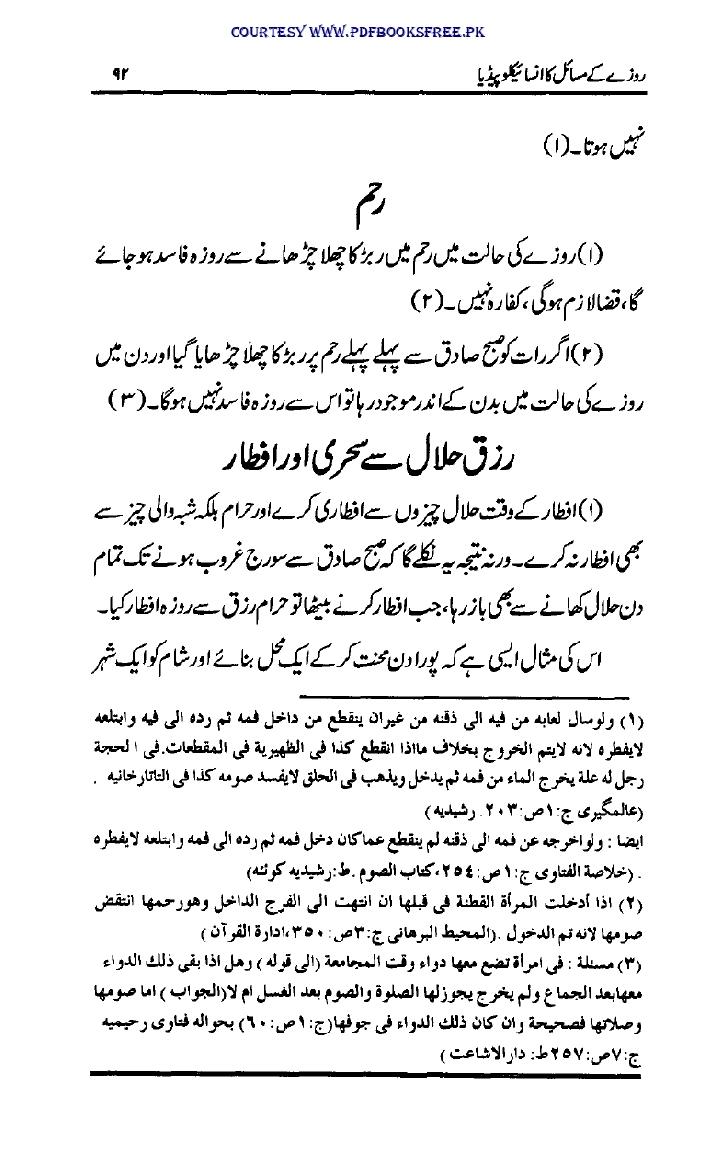 COURTESY WWW.PDFBOOKSFREE.PK
روزے کے مسائل کا انسائیکلوپیڈیا ۹۲
نہیں ہوتا۔(۱)
رحم
(۱) روزے کی حالت میں رحم میں ربڑ کا چھلا چڑھانے سے روزہ فاسد ہو جائے
گا، قضا لازم ہوگی، کفارہ نہیں۔(۲)
(۲) اگر رات کو صبح صادق سے پہلے پہلے رحم پر ربڑ کا چھلا چڑھایا گیا اور دن میں
روزے کی حالت میں بدن کے اندر موجود رہا تو اس سے روزہ فاسد نہیں ہوگا۔(۳)
رزق حلال سے سحری اور افطار
(۱) افطار کے وقت حلال چیزوں سے افطاری کرے اور حرام بلکہ شبہ والی چیز سے
بھی افطار نہ کرے۔ ورنہ نتیجہ یہ نکلے گا کہ صبح صادق سے سورج غروب ہونے تک تمام
دن حلال کھانے سے بھی باز رہا، جب افطار کرنے بیٹھا تو حرام رزق سے روزہ افطار کیا۔
اس کی مثال ایسی ہے کہ پورا دن محنت کر کے ایک محل بنائے اور شام کو ایک شہر
(۱) ولوسال لعابه من فيه الى ذقنه من غيران ينقطع من داخل فمه ثم رده الى فيه وابتلعه
لايفطره لانه لايتم الخروج بخلاف مااذا انقطع كذا فى الظهيرية فى المقطعات. فى الحجة
رجل له علة يخرج الماء من فمه ثم يدخل ويذهب فى الحلق لايفسد صومه كذا فى التاتارخانيه .
(عالمگیری ج:۱ ص:۲۰۳. رشیدیه)
ايضا : ولو اخرجه عن فمه الى ذقنه لم ينقطع عماكان دخل فمه ثم رده الى فمه وابتلعه لايفطره
. (خلاصة الفتاوى ج:۱ ص:۲۵۴، كتاب الصوم .ط:رشيديه كوئٹه)
(۲) اذا أدخلت المرأة القطنة فى قبلها ان انتهت الى الفرج الداخل وهو رحمها انتقض
صومها لانه تم الدخول .(المحيط البرهانى ج:۳ص:۳۵۰، ادارة القرآن )
(۳) مسئلة : فى امرأة تضع معها دواء وقت المجامعة (الى قوله ) وهل اذا بقى ذلك الدواء
معهابعد الجماع ولم يخرج يجوزلها الصلوة والصوم بعد الغسل ام لا(الجواب ) اما صومها
وصلاتها فصحيحة وان كان ذلك الدواء فى جوفها(ج:۱ص:۶۰) بحواله فتاوى رحيميه
ج:۷ص:۲۵۷ط: دارالاشاعت )